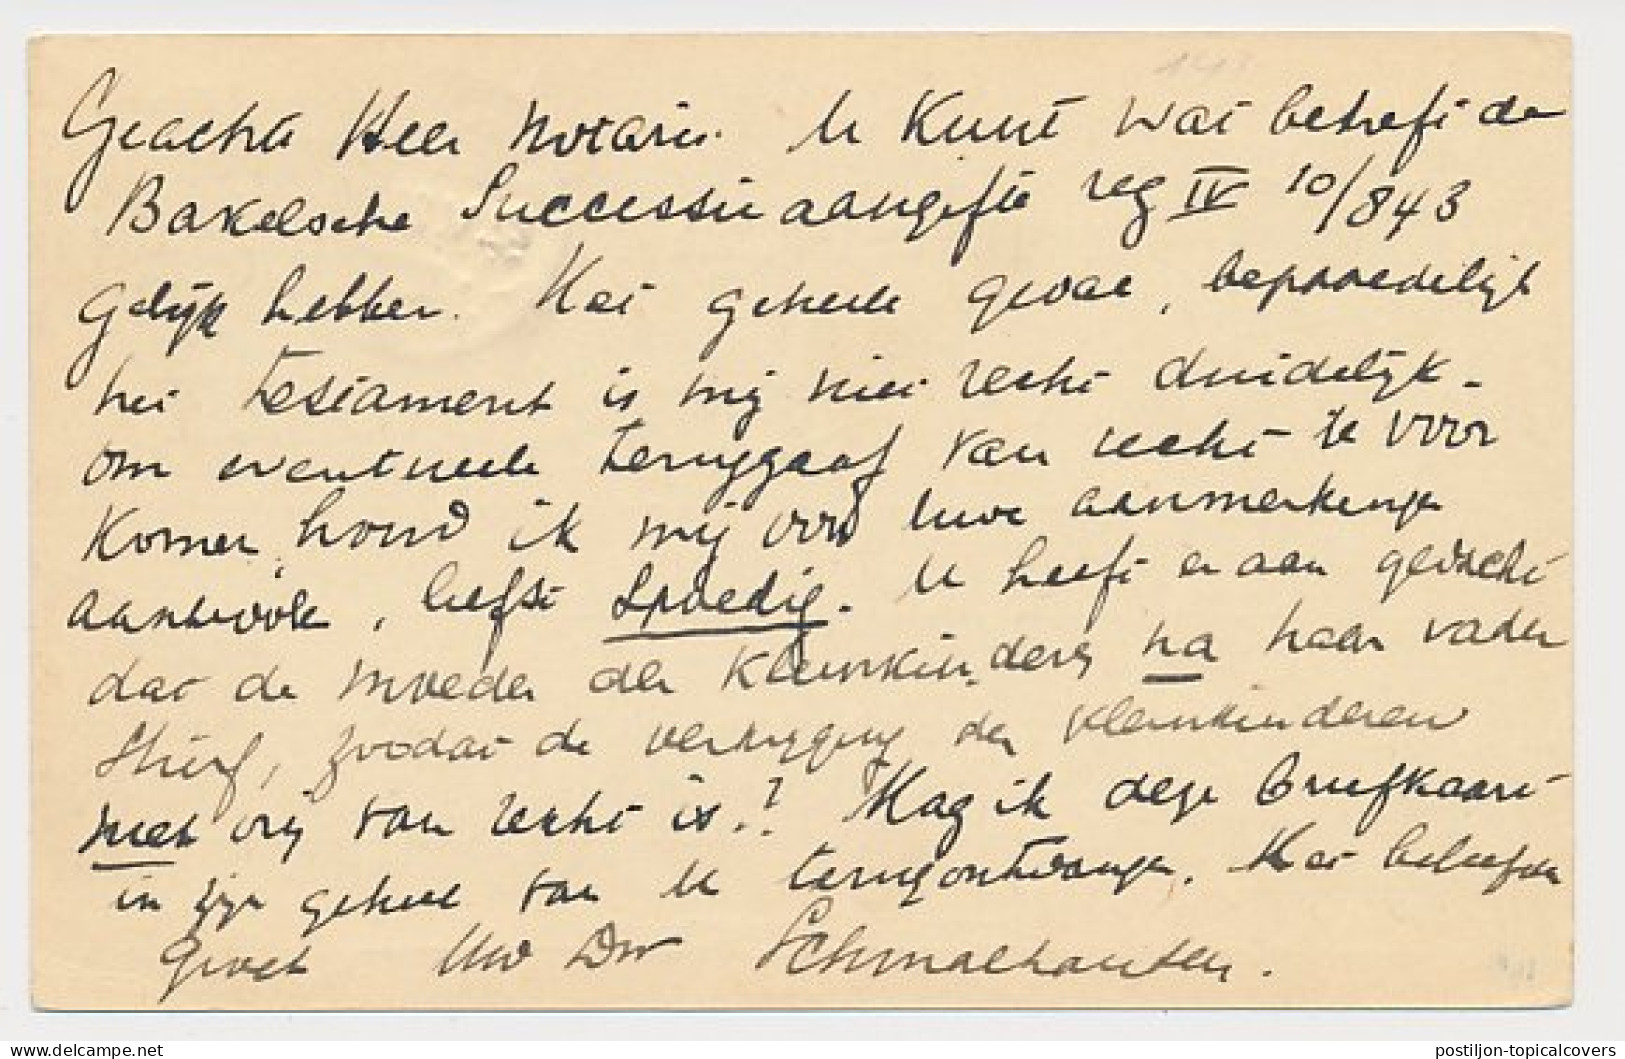 Geachte Heer Notaris. U kunt wat betreft de
Bakelsche Successie aangifte reg IV 10/843
gelijk hebben. Het geheele geval, bepaaldelijk
het testament is mij niet recht duidelijk -
om eventueele teruggaaf van recht te voor
komen, houd ik mij voor Uwe aanmerkingen
aanbevolen, liefst spoedig. U heeft er aan gedacht
dat de moeder der kleinkinderen na haar vader
stierf, zoodat de verkrijging der kleinkinderen
niet vrij van recht is.? Mag ik deze briefkaart
in zijn geheel van U terugontvangen. Met beleefden
Groet Uw Dw Schmalhausen.
postiljon-topicalcovers
© www.delcampe.net